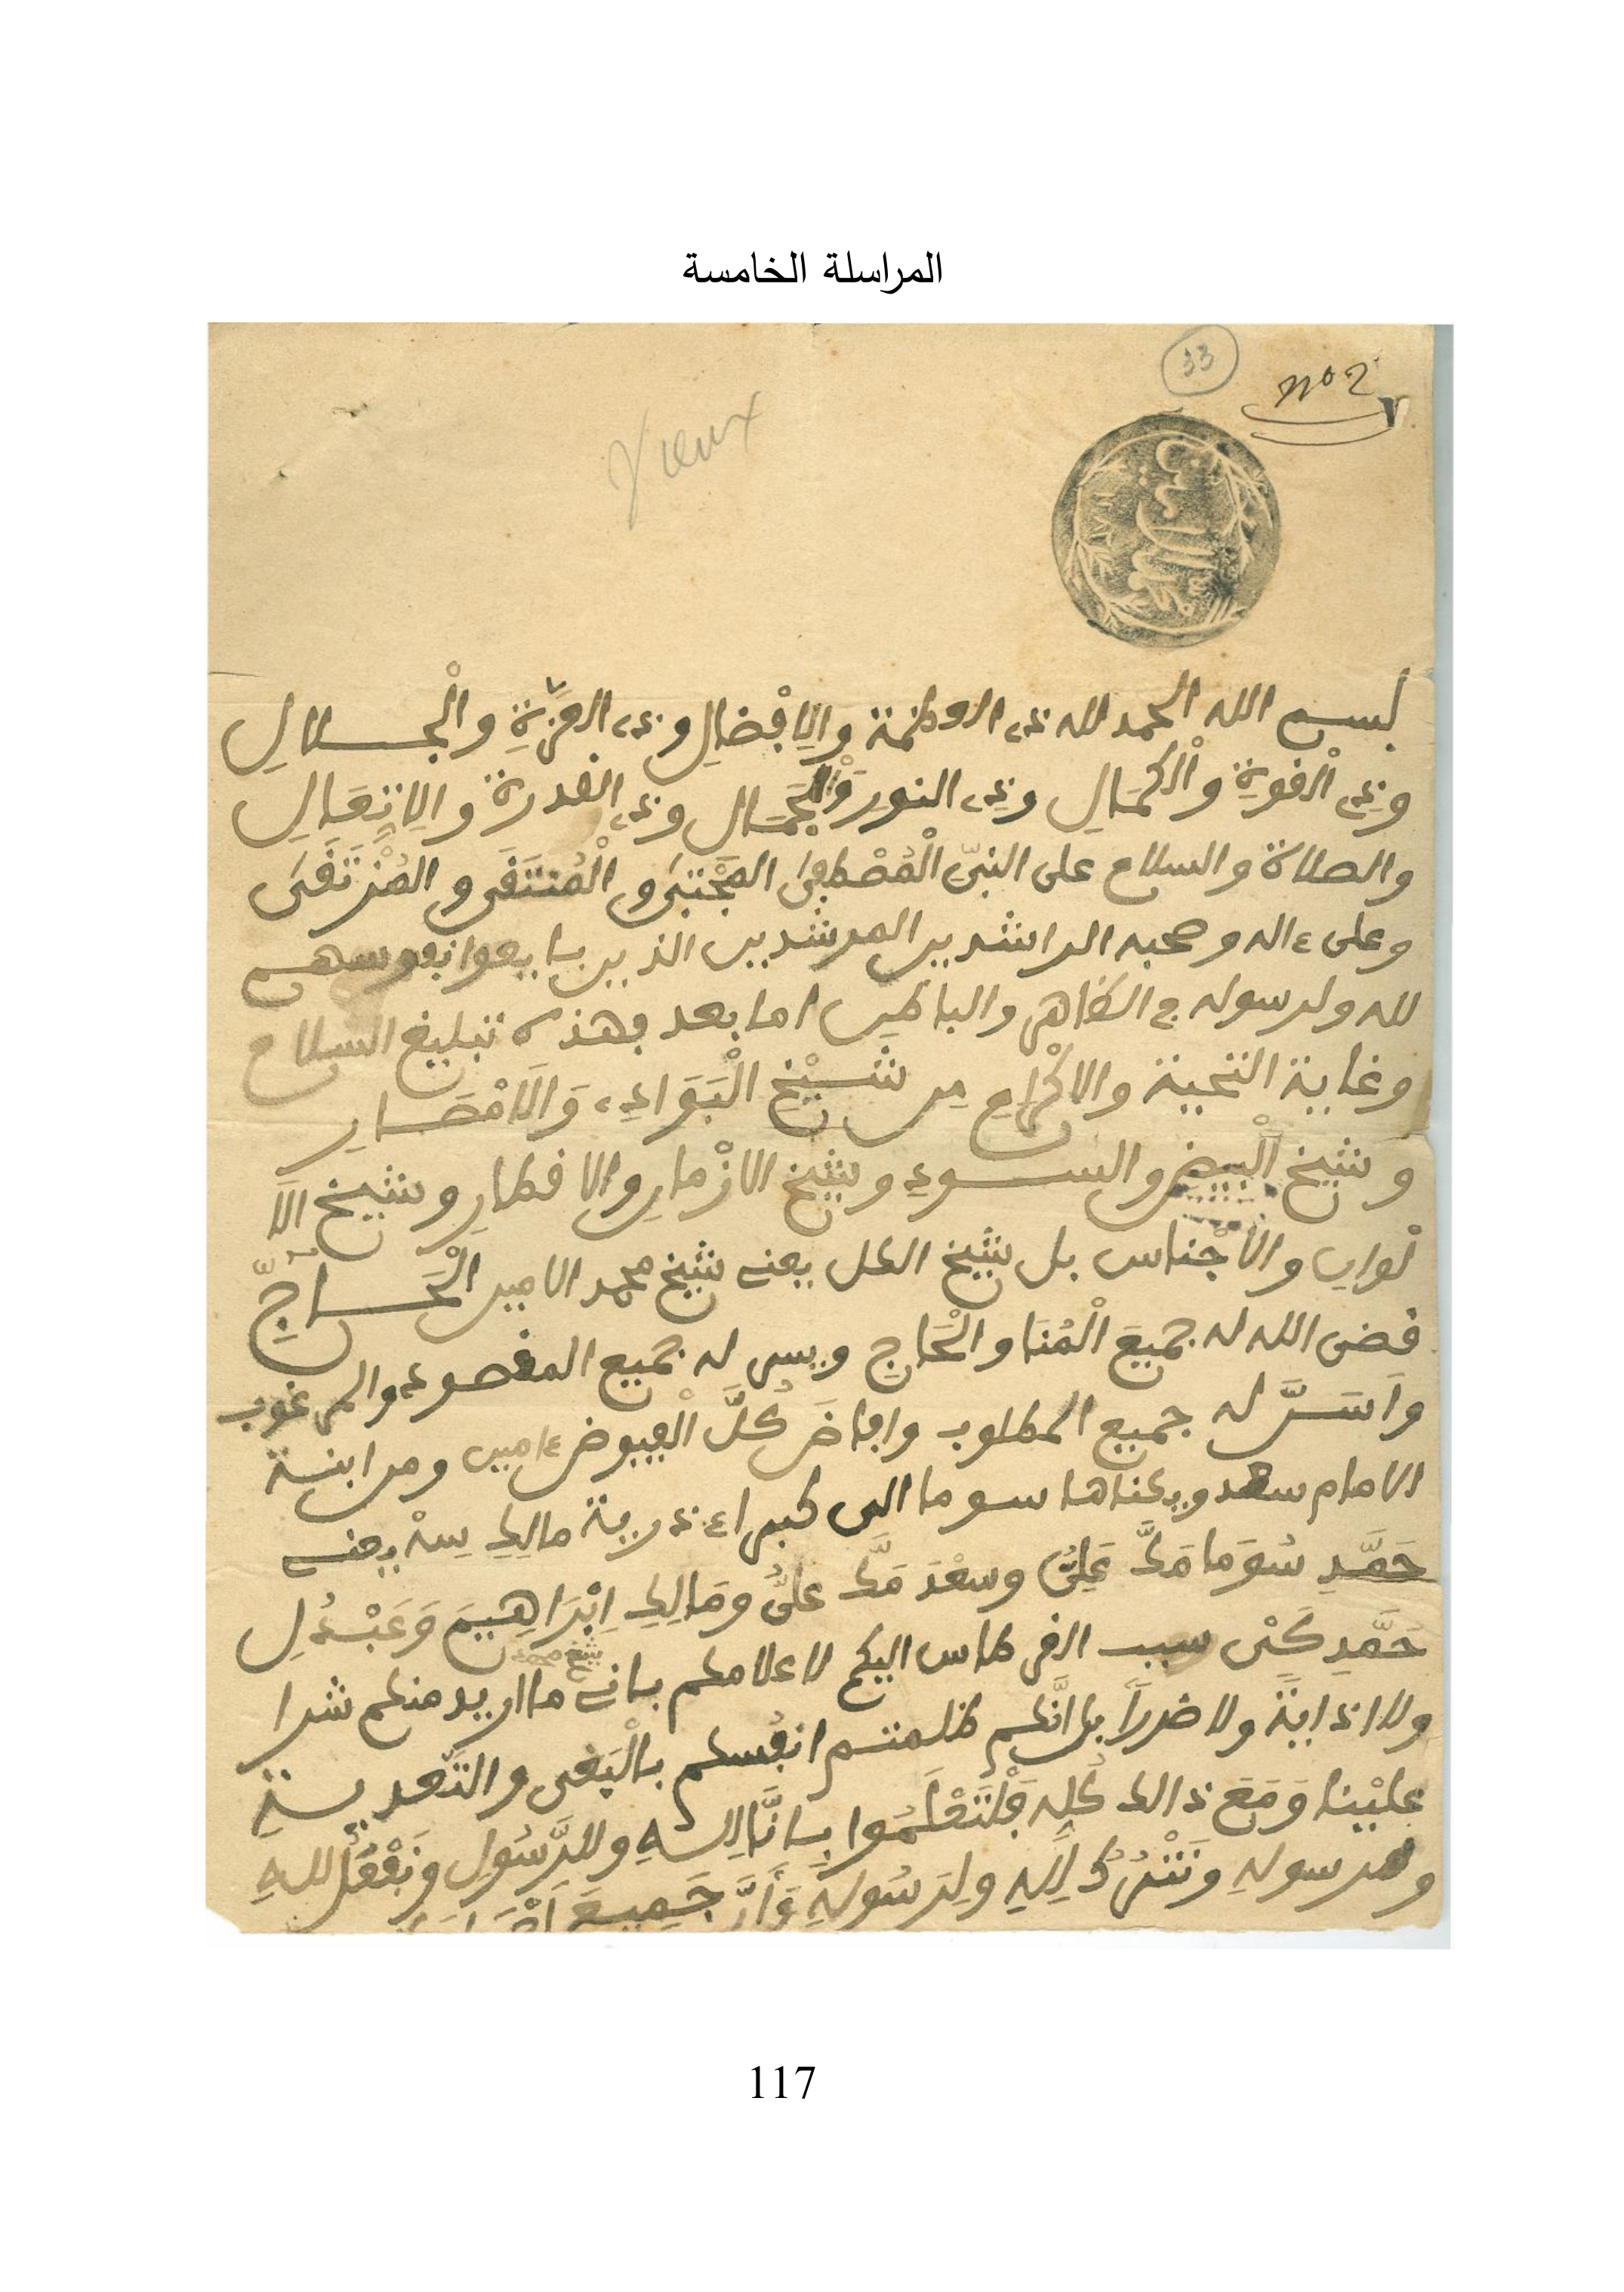 المراسلة الخامسة
33
no 2
Vieux
بسم الله الحمد لله ذي العظمة والِافْضَالِ وذي العِزَّةِ والْجَلالِ
وذِي الْقوةِ والْكمَالِ وذِي النورِ وَالْجَمَال وذي القدرة والِانتِعَالِ
والصلاة والسلام على النبيّ الْمُصْطَفَى المجْتَبَى والْمُنتَقَى والمُرْتَقَى
وعلى ءاله وصحبه الراشدين المرشدين الذين بايعوا نفوسهم
لله ولرسوله في الظاهر والباطن اما بعد فهذه تبليغ السلام
وغاية التحية والاكْرام مِن شَيْخِ الْبَوَادِي وَالَامْصَارِ
وشيخ الْبيض والسودِ وشيخ الازْمانِ والاقطارِ وشيخ الَا
لوانِ والاجْناس بل شيخ الكل يعني شيخ محمد الامين الْحَاجِّ
قضى الله له جميعَ الْمُنَا والْحَاجِ ويسر له جميع المقصود والمرغوب
واَسَرَّ له جميع المطلوب وافاضَ كُلَّ الْفيوض ءامين ومن ابنة
الامام سعد ويكناها سوما الى كبراء ذرية مالِك سِهْ يعني
حَمَّدِ سُوَما مَكَّ عَلِيُّ وسعْدَ مَكَّ عَلِيُّ ومَالِك اِبْرَاهِيمَ وَعَبْدُلِ
حَمَّدِ كَنْ سبب القرطاس اليكم لاعلامكم باني شيخ محمد ما اريد منكم شرا
ولا اذايةً ولا ضرراً بل انَّكم ظلمتم انفُسكم بالْبَغي والتَّعديةِ
عليْنا وَمَعَ ذالك كُلِهِ فَلْتَعْلَمُوا بِانَّا لِلهِ وللرَّسُولِ ونَفْعَلُ للهِ
ولرسولهِ ونَتْرُكُ لِلهِ ولِرَسُولهِ وَأَنَّ جَمِيعَ
117